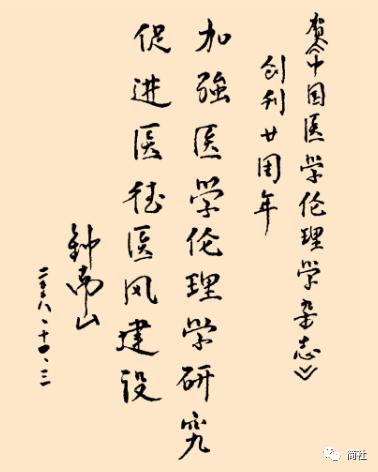 贺《中国医学伦理学杂志》
创刊廿周年
加强医学伦理学研究
促进医德医风建设
钟南山
二〇〇八、十、三
简社